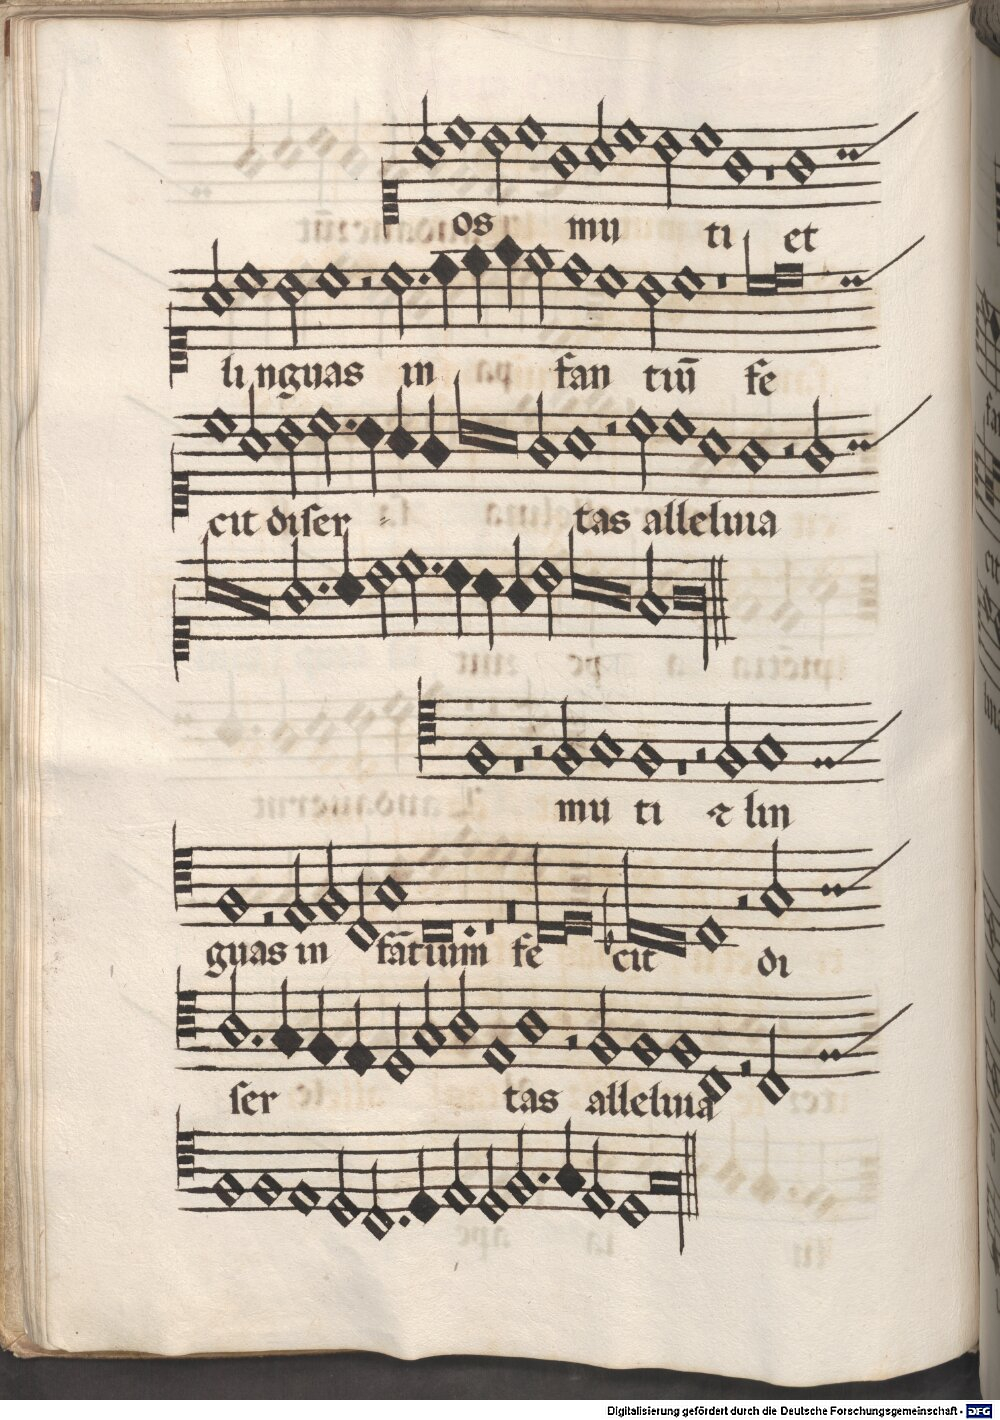 os mu ti et
linguas in fan tiū fe
cit diser tas alleluia
mu ti ⁊ lin
guas in fātium fe cit di
ser tas alleluia
Digitalisierung gefördert durch die Deutsche Forschungsgemeinschaft - DFG